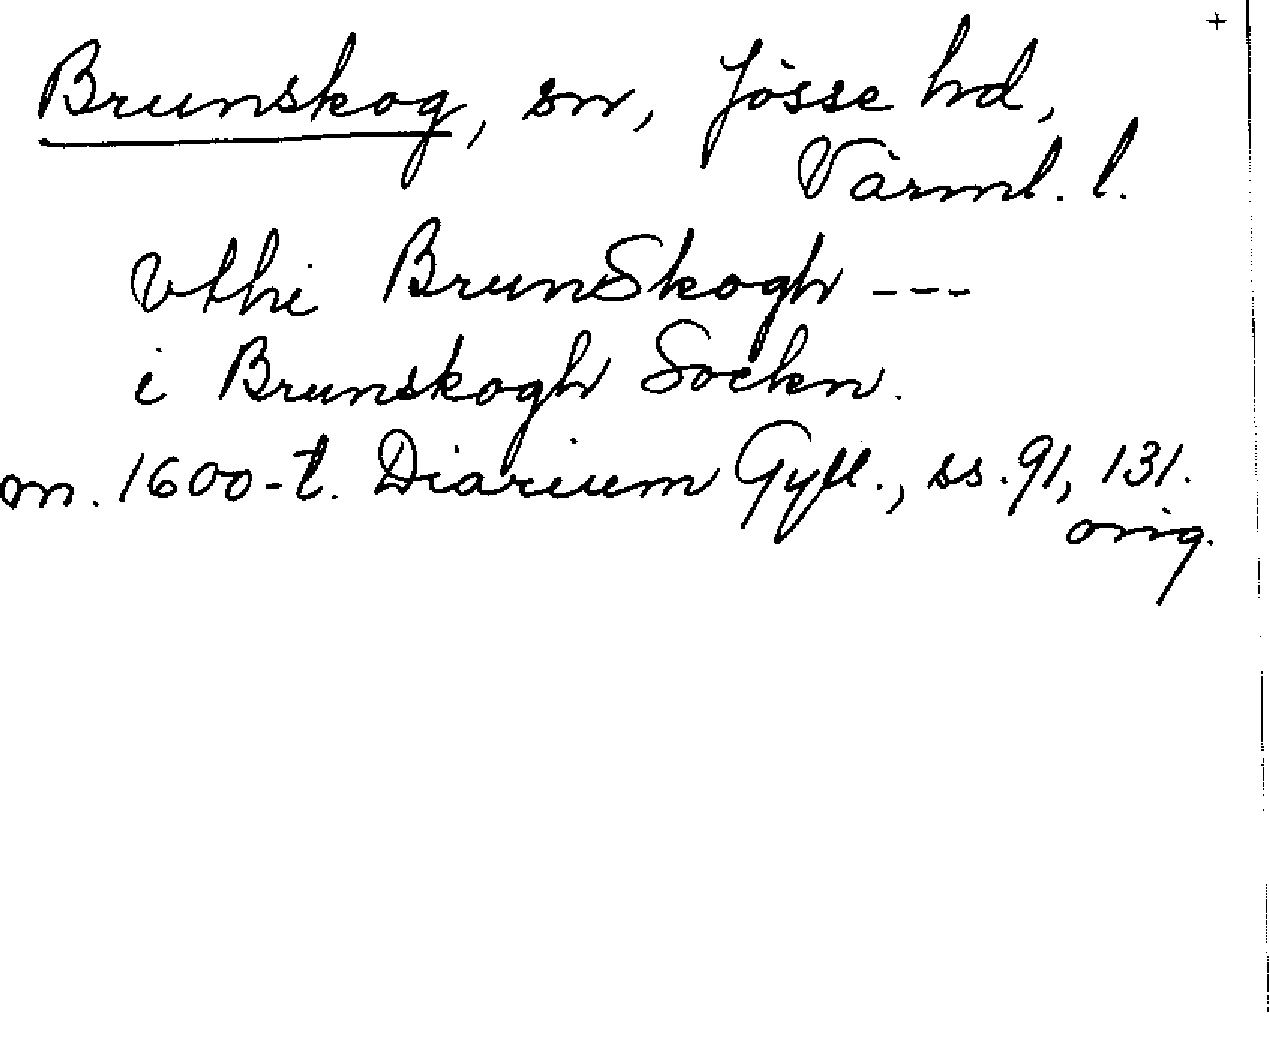 +
Brunskog, sn, Jösse hd,
Värml. l.
Vthi BrunSkogh ---
i Brunskogh Sockn.
m. 1600-t. Diarium Gyll., ss. 91, 131.
orig.